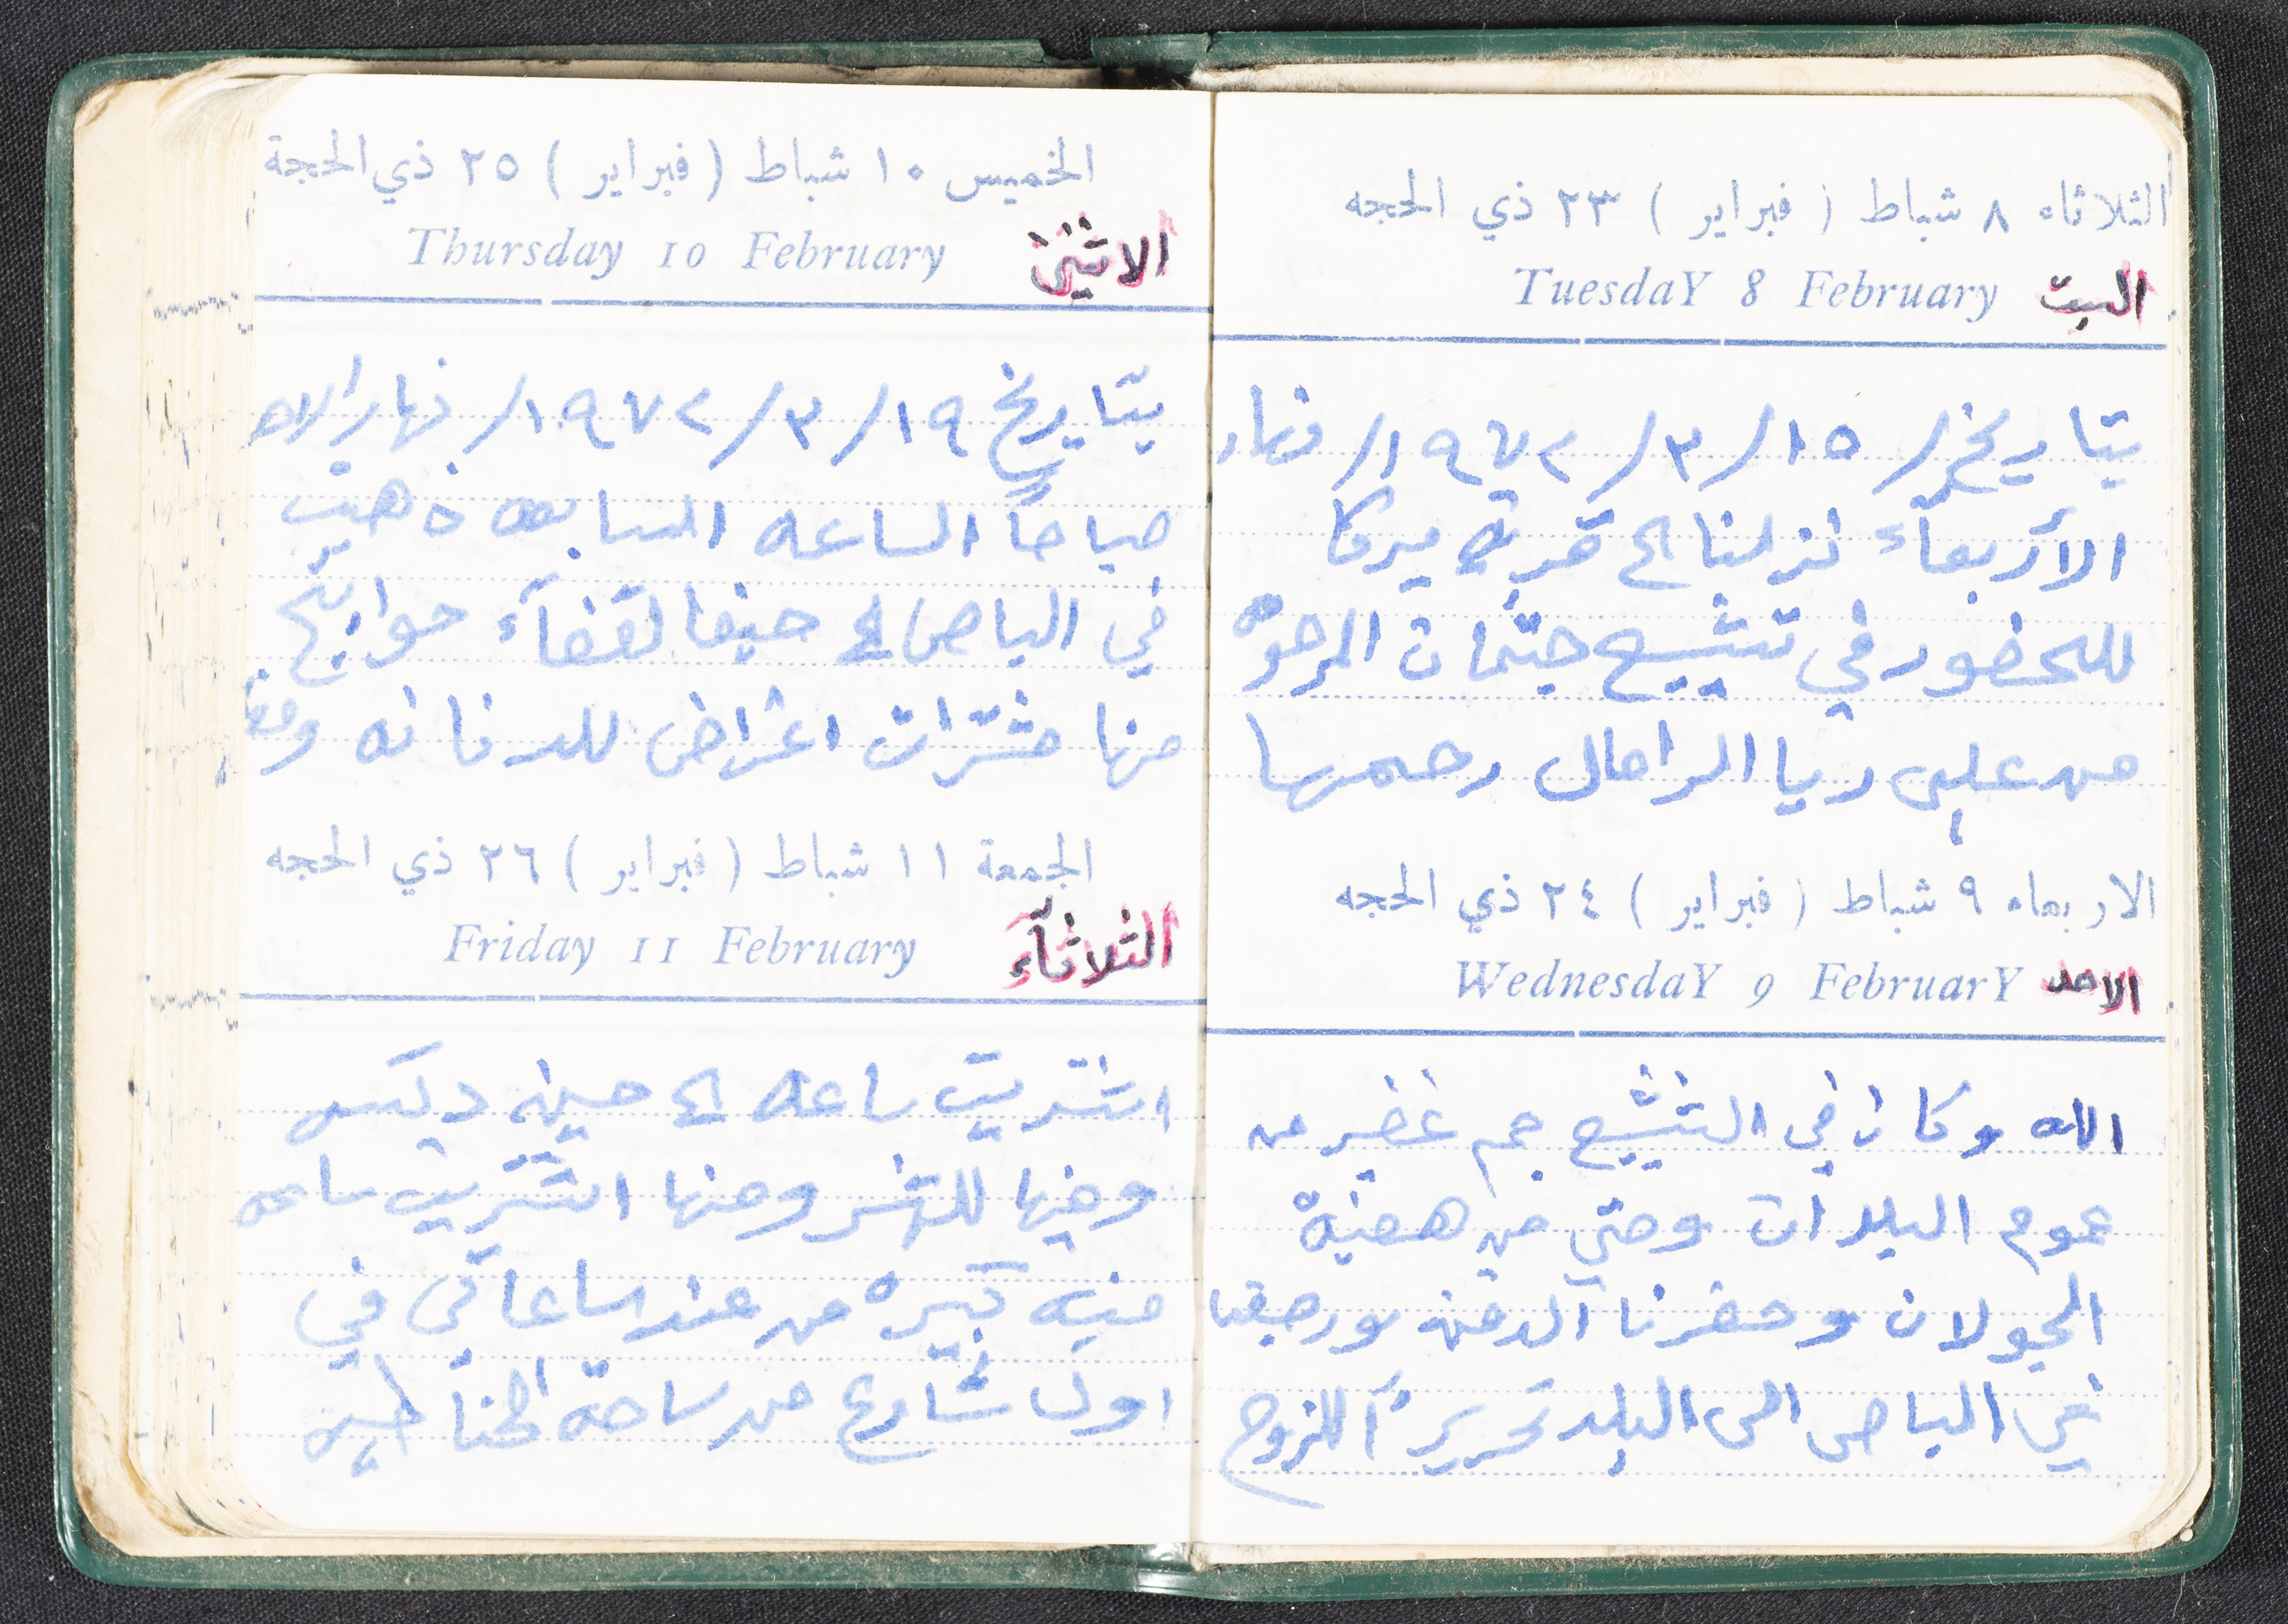 الثلاثاء ٨ شباط ( فبراير ) ٢٣ ذي الحجه
TuesdaY 8 February السبت
بتاريخ / ١٥ / ٣ / ١٩٧٢ / نهار
الأربعآء نزلنا الى قرية يركا
للحضور في تشييع جثمان المرحومه
من علي ريا الرامال رحمها
الاربعاء ٩ شباط ( فبراير ) ٢٤ ذي الحجه
WednesdaY 9 FebruarY الاحد
الله وكان في التشييع جم غفير من
عموم البلدان وحتى من هضبة
الجولان وحضرنا الدفن ورجعنا
في الباص الى البلد تحريراً للزوج
الخميس ١٠ شباط ( فبراير ) ٢٥ ذي الحجة
Thursday 10 February الاثنين
بتاريخ ١٩ / ٣ / ١٩٧٢ / نهار الاحد
صباحاً الساعه السابعه ذهبت
في الباص الى حيفا لقضآء حوايج
منها مشترات اغراض للدكانه ومنها
الجمعة ١١ شباط ( فبراير ) ٢٦ ذي الحجه
Friday 11 February الثلاثآء
اشتريت ساعه الى
وفيها للشهر ومنها اشتريت ساعه
منبه كبيره من عند ساعاتي في
اول شارع من ساحة الحناطير